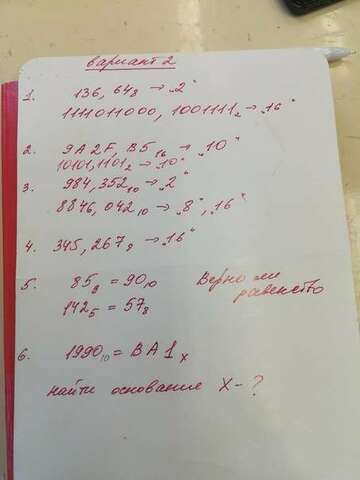 вариант 2
1. 136, 64₈ → „2"
1111011000, 1001111₂ → „16"
2. 9A2F, B5₁₆ → „10"
10101,1101₂ → „10"
3. 984,352₁₀ → „2"
8846,042₁₀ → „8", „16"
4. 345,267₈ → „16"
5. 85₉ = 90₁₀ Верно ли
142₅ = 57₈ равенство
6. 1990₁₀ = BA1ₓ
найти основание X - ?